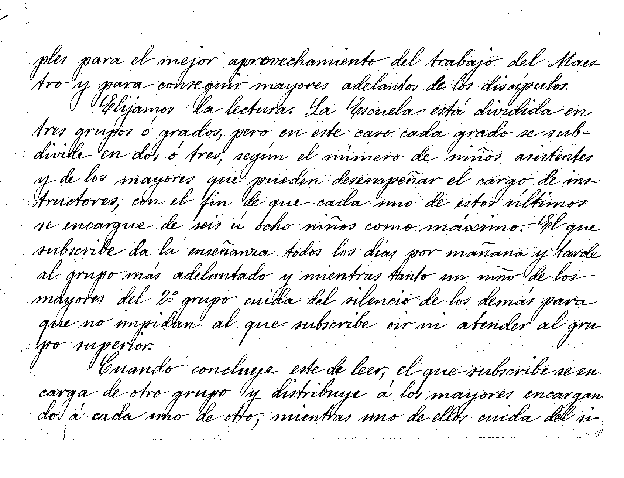 ples para el mejor aprovechamiento del trabajo del Maes-
tro y para conseguir mayores adelantos de los discípulos.
Elijamos la lectura. La Escuela está dividida en
tres grupos ó grados, pero en este caso cada grado se sub-
divide en dos ó tres, según el número de niños asistentes
y de los mayores que pueden desempeñar el cargo de ins-
tructores, con el fin de que cada uno de estos últimos
se encargue de seis ú ocho niños como máximo.- El que
subscribe da la enseñanza todos los días por mañana y tarde
al grupo más adelantado y mientras tanto un niño de los
mayores del 2º grupo cuida del silencio de los demás para
que no impidan al que subscribe oir ni atender al gru-
po superior.
Cuando concluye este de leer, el que subscribe se en
carga de otro grupo y distribuye á los mayores encargan
do á cada uno de otro, mientras uno de ellos cuida del si-